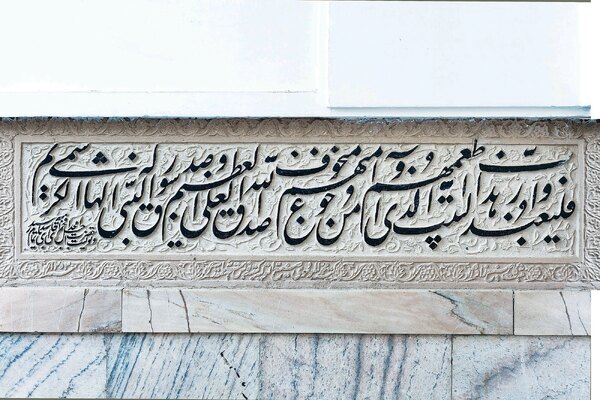 فلیعبدوا رب هذا البیت الذی اطعمهم من جوع وآمنهم من خوف صدق الله العلی العظیم و صدق رسوله النبی الهاشمی الکریم